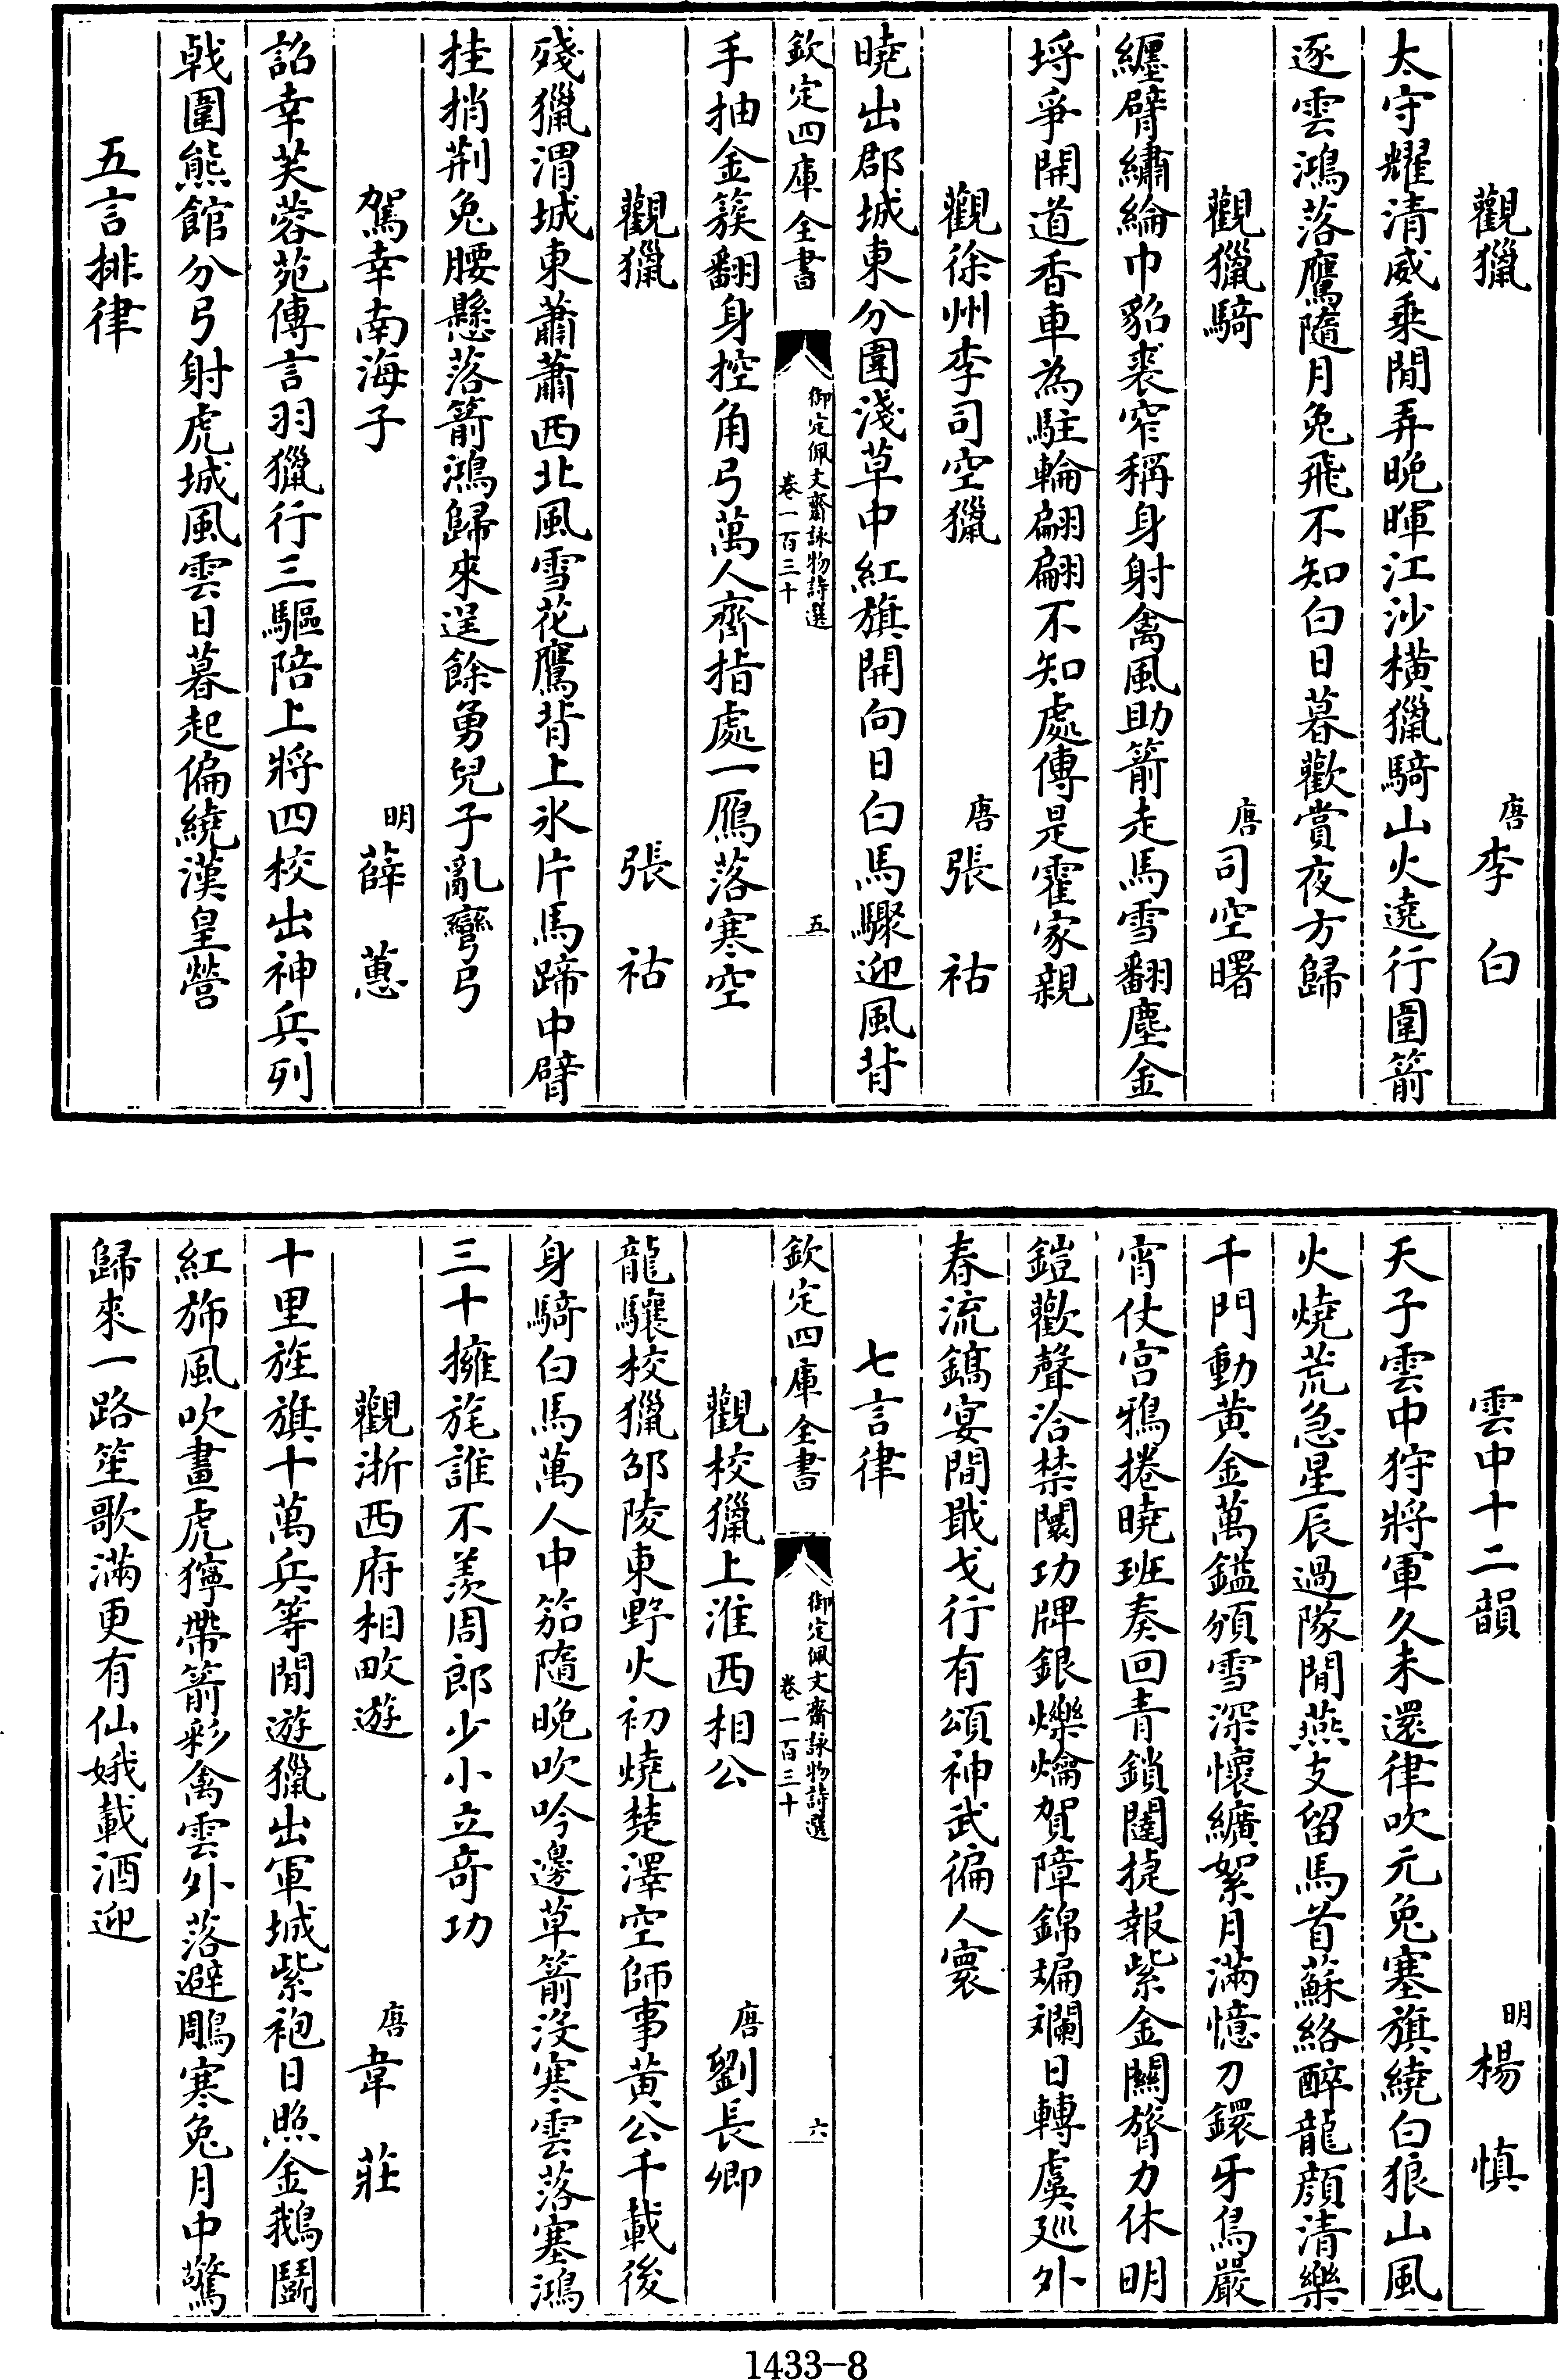 觀獵 唐 李白
太守耀清威乘閒弄晚暉江沙橫獵騎山火遶行圍箭
逐雲鴻落鷹隨月兔飛不知白日暮歡賞夜方歸
觀獵騎 唐 司空曙
纏臂繡綸巾貂裘窄稱身射禽風助箭走馬雪翻塵金
埒爭開道香車為駐輪翩翩不知處傳是霍家親
觀徐州李司空獵 唐 張祜
曉出郡城東分圍淺草中紅旗開向日白馬驟迎風背
欽定四庫全書 御定佩文齋詠物詩選 卷一百三十 五
手抽金簇翻身控角弓萬人齊指處一鴈落寒空
觀獵 張祜
殘獵渭城東蕭蕭西北風雪花鷹背上氷片馬蹄中臂
挂捎荆兔腰懸落箭鴻歸來逞餘勇兒子亂彎弓
駕幸南海子 明 薛蕙
詔幸芙蓉苑傳言羽獵行三驅陪上將四校出神兵列
戟圍熊館分弓射虎城風雲日暮起偏繞漢皇營
五言排律
雲中十二韻 明 楊慎
天子雲中狩將軍久未還律吹元兔塞旗繞白狼山風
火燒荒急星辰過隊閒燕支留馬首蘇絡醉龍顏清樂
千門動黃金萬鎰頒雪深懷纊絮月滿憶刀鐶牙鳥嚴
宵仗宮鴉捲曉班奏回青鎖闥捷報紫金關膂力休明
鎧歡聲洽禁闤功牌銀爍爚賀障錦斒斕日轉虞廵外
春流鎬宴間戢戈行有頌神武徧人寰
七言律
欽定四庫全書 御定佩文齋詠物詩選 卷一百三十 六
觀校獵上淮西相公 唐 劉長卿
龍驤校獵邵陵東野火初燒楚澤空師事黃公千載後
身騎白馬萬人中笳隨晚吹吟邊草箭沒寒雲落塞鴻
三十擁旄誰不羨周郎少小立奇功
觀浙西府相畋遊 唐 韋莊
十里旌旗十萬兵等閒遊獵出軍城紫袍日照金鵝鬭
紅斾風吹畫虎獰帶箭彩禽雲外落避鵰寒兔月中驚
歸來一路笙歌滿更有仙娥載酒迎
1433-8